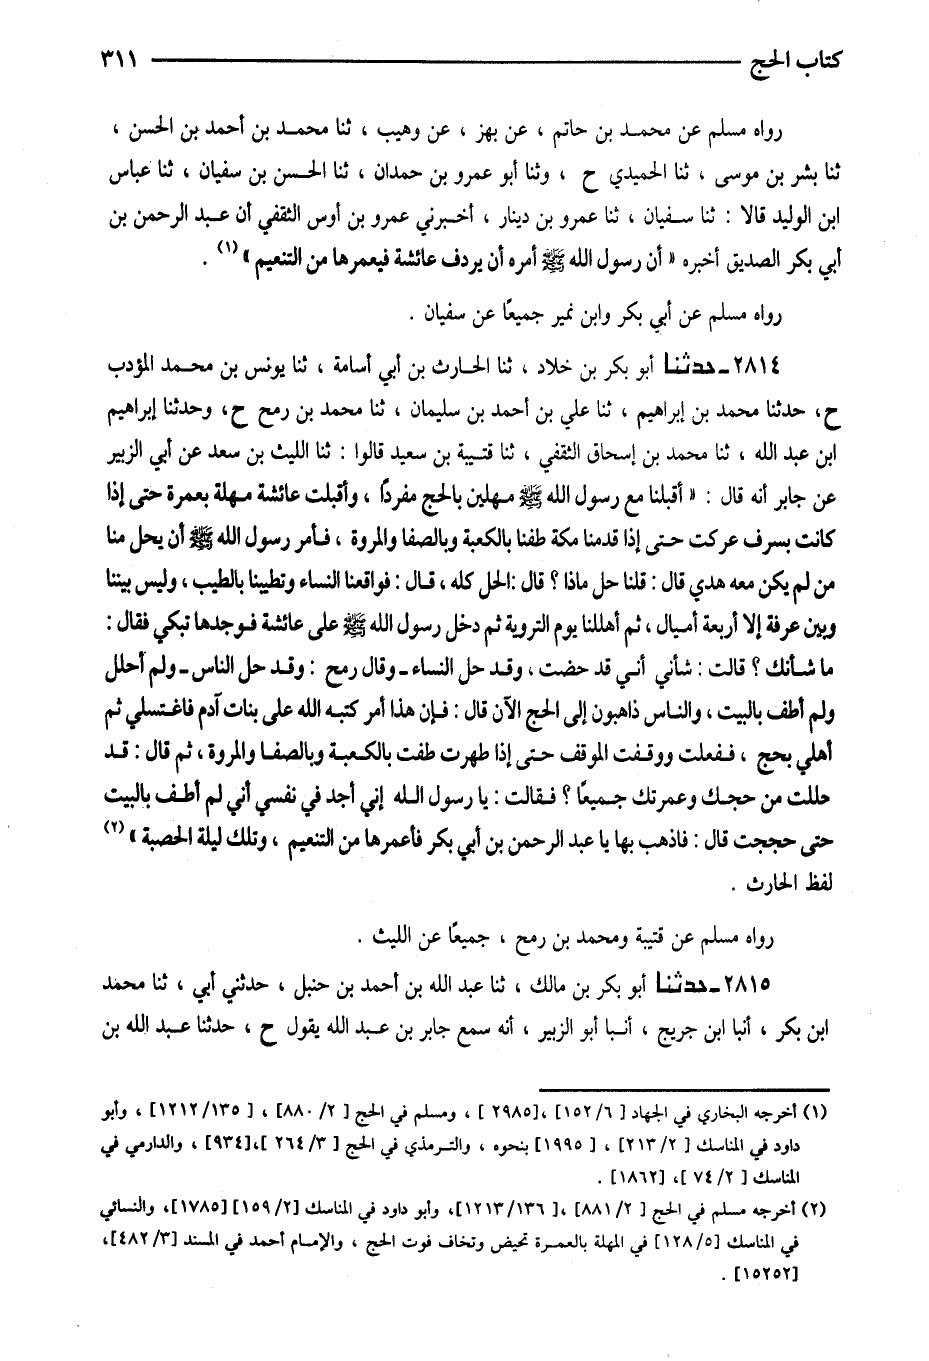 كتاب الحج ٣١١
رواه مسلم عن محمد بن حاتم ، عن بهز ، عن وهيب ، ثنا محمد بن أحمد بن الحسن ،
ثنا بشر بن موسى ، ثنا الحميدي ح ، وثنا أبو عمرو بن حمدان ، ثنا الحسن بن سفيان ، ثنا عباس
ابن الوليد قالا : ثنا سفيان ، ثنا عمرو بن دينار ، أخبرني عمرو بن أوس الثقفي أن عبد الرحمن بن
أبي بكر الصديق أخبره « أن رسول الله ﷺ أمره أن يردف عائشة فيعمرها من التنعيم » (١) .
رواه مسلم عن أبي بكر وابن نمير جميعًا عن سفيان .
٢٨١٤ ـ حدثنا أبو بكر بن خلاد ، ثنا الحارث بن أبي أسامة ، ثنا يونس بن محمد المؤدب
ح، حدثنا محمد بن إبراهيم ، ثنا علي بن أحمد بن سليمان ، ثنا محمد بن رمح ح، وحدثنا إبراهيم
ابن عبد الله ، ثنا محمد بن إسحاق الثقفي ، ثنا قتيبة بن سعيد قالوا : ثنا الليث بن سعد عن أبي الزبير
عن جابر أنه قال : « أقبلنا مع رسول الله ﷺ مهلين بالحج مفردًا ، وأقبلت عائشة مهلة بعمرة حتى إذا
كانت بسرف عركت حتى إذا قدمنا مكة طفنا بالكعبة وبالصفا والمروة ، فأمر رسول الله ﷺ أن يحل منا
من لم يكن معه هدي قال : قلنا حل ماذا ؟ قال :الحل كله ، قال : فواقعنا النساء وتطيبنا بالطيب ، وليس بيننا
وبين عرفة إلا أربعة أميال ، ثم أهللنا يوم التروية ثم دخل رسول الله ﷺ على عائشة فوجدها تبكي فقال :
ما شأنك ؟ قالت : شأني أني قد حضت ، وقد حل النساء ـ وقال رمح : وقد حل الناس ـ ولم أحلل
ولم أطف بالبيت ، والناس ذاهبون إلى الحج الآن قال : فإن هذا أمر كتبه الله على بنات آدم فاغتسلي ثم
أهلي بحج ، ففعلت ووقفت الموقف حتى إذا طهرت طفت بالكعبة وبالصفا والمروة ، ثم قال : قد
حللت من حجك وعمرتك جميعًا ؟ فقالت : يا رسول الله إني أجد في نفسي أني لم أطف بالبيت
حتى حججت قال : فاذهب بها يا عبد الرحمن بن أبي بكر فأعمرها من التنعيم ، وتلك ليلة الحصبة » (٢)
لفظ الحارث .
رواه مسلم عن قتيبة ومحمد بن رمح ، جميعًا عن الليث .
٢٨١٥ ـ حدثنا أبو بكر بن مالك ، ثنا عبد الله بن أحمد بن حنبل ، حدثني أبي ، ثنا محمد
ابن بكر ، أنبا ابن جريج ، أنبا أبو الزبير ، أنه سمع جابر بن عبد الله يقول ح ، حدثنا عبد الله بن
(١) أخرجه البخاري في الجهاد [ ١٥٢/٦] ،[٢٩٨٥ ] ، ومسلم في الحج [ ٨٨٠/٢] ، [ ١٢١٢/١٣٥] ، وأبو
داود في المناسك [ ٢١٣/٢] ، [ ١٩٩٥] بنحوه ، والترمذي في الحج [ ٢٦٤/٣ ]،[٩٣٤] ، والدارمي في
المناسك [ ٧٤/٢ ]، [١٨٦٢] .
(٢) أخرجه مسلم في الحج [ ٨٨١/٢] ،[ ١٢١٣/١٣٦]، وأبو داود في المناسك [١٥٩/٢] [١٧٨٥]، والنسائي
في المناسك [١٢٨/٥] في المهلة بالعمرة تحيض وتخاف فوت الحج ، والإمام أحمد في المسند [٤٨٢/٣]،
[١٥٢٥٢] .